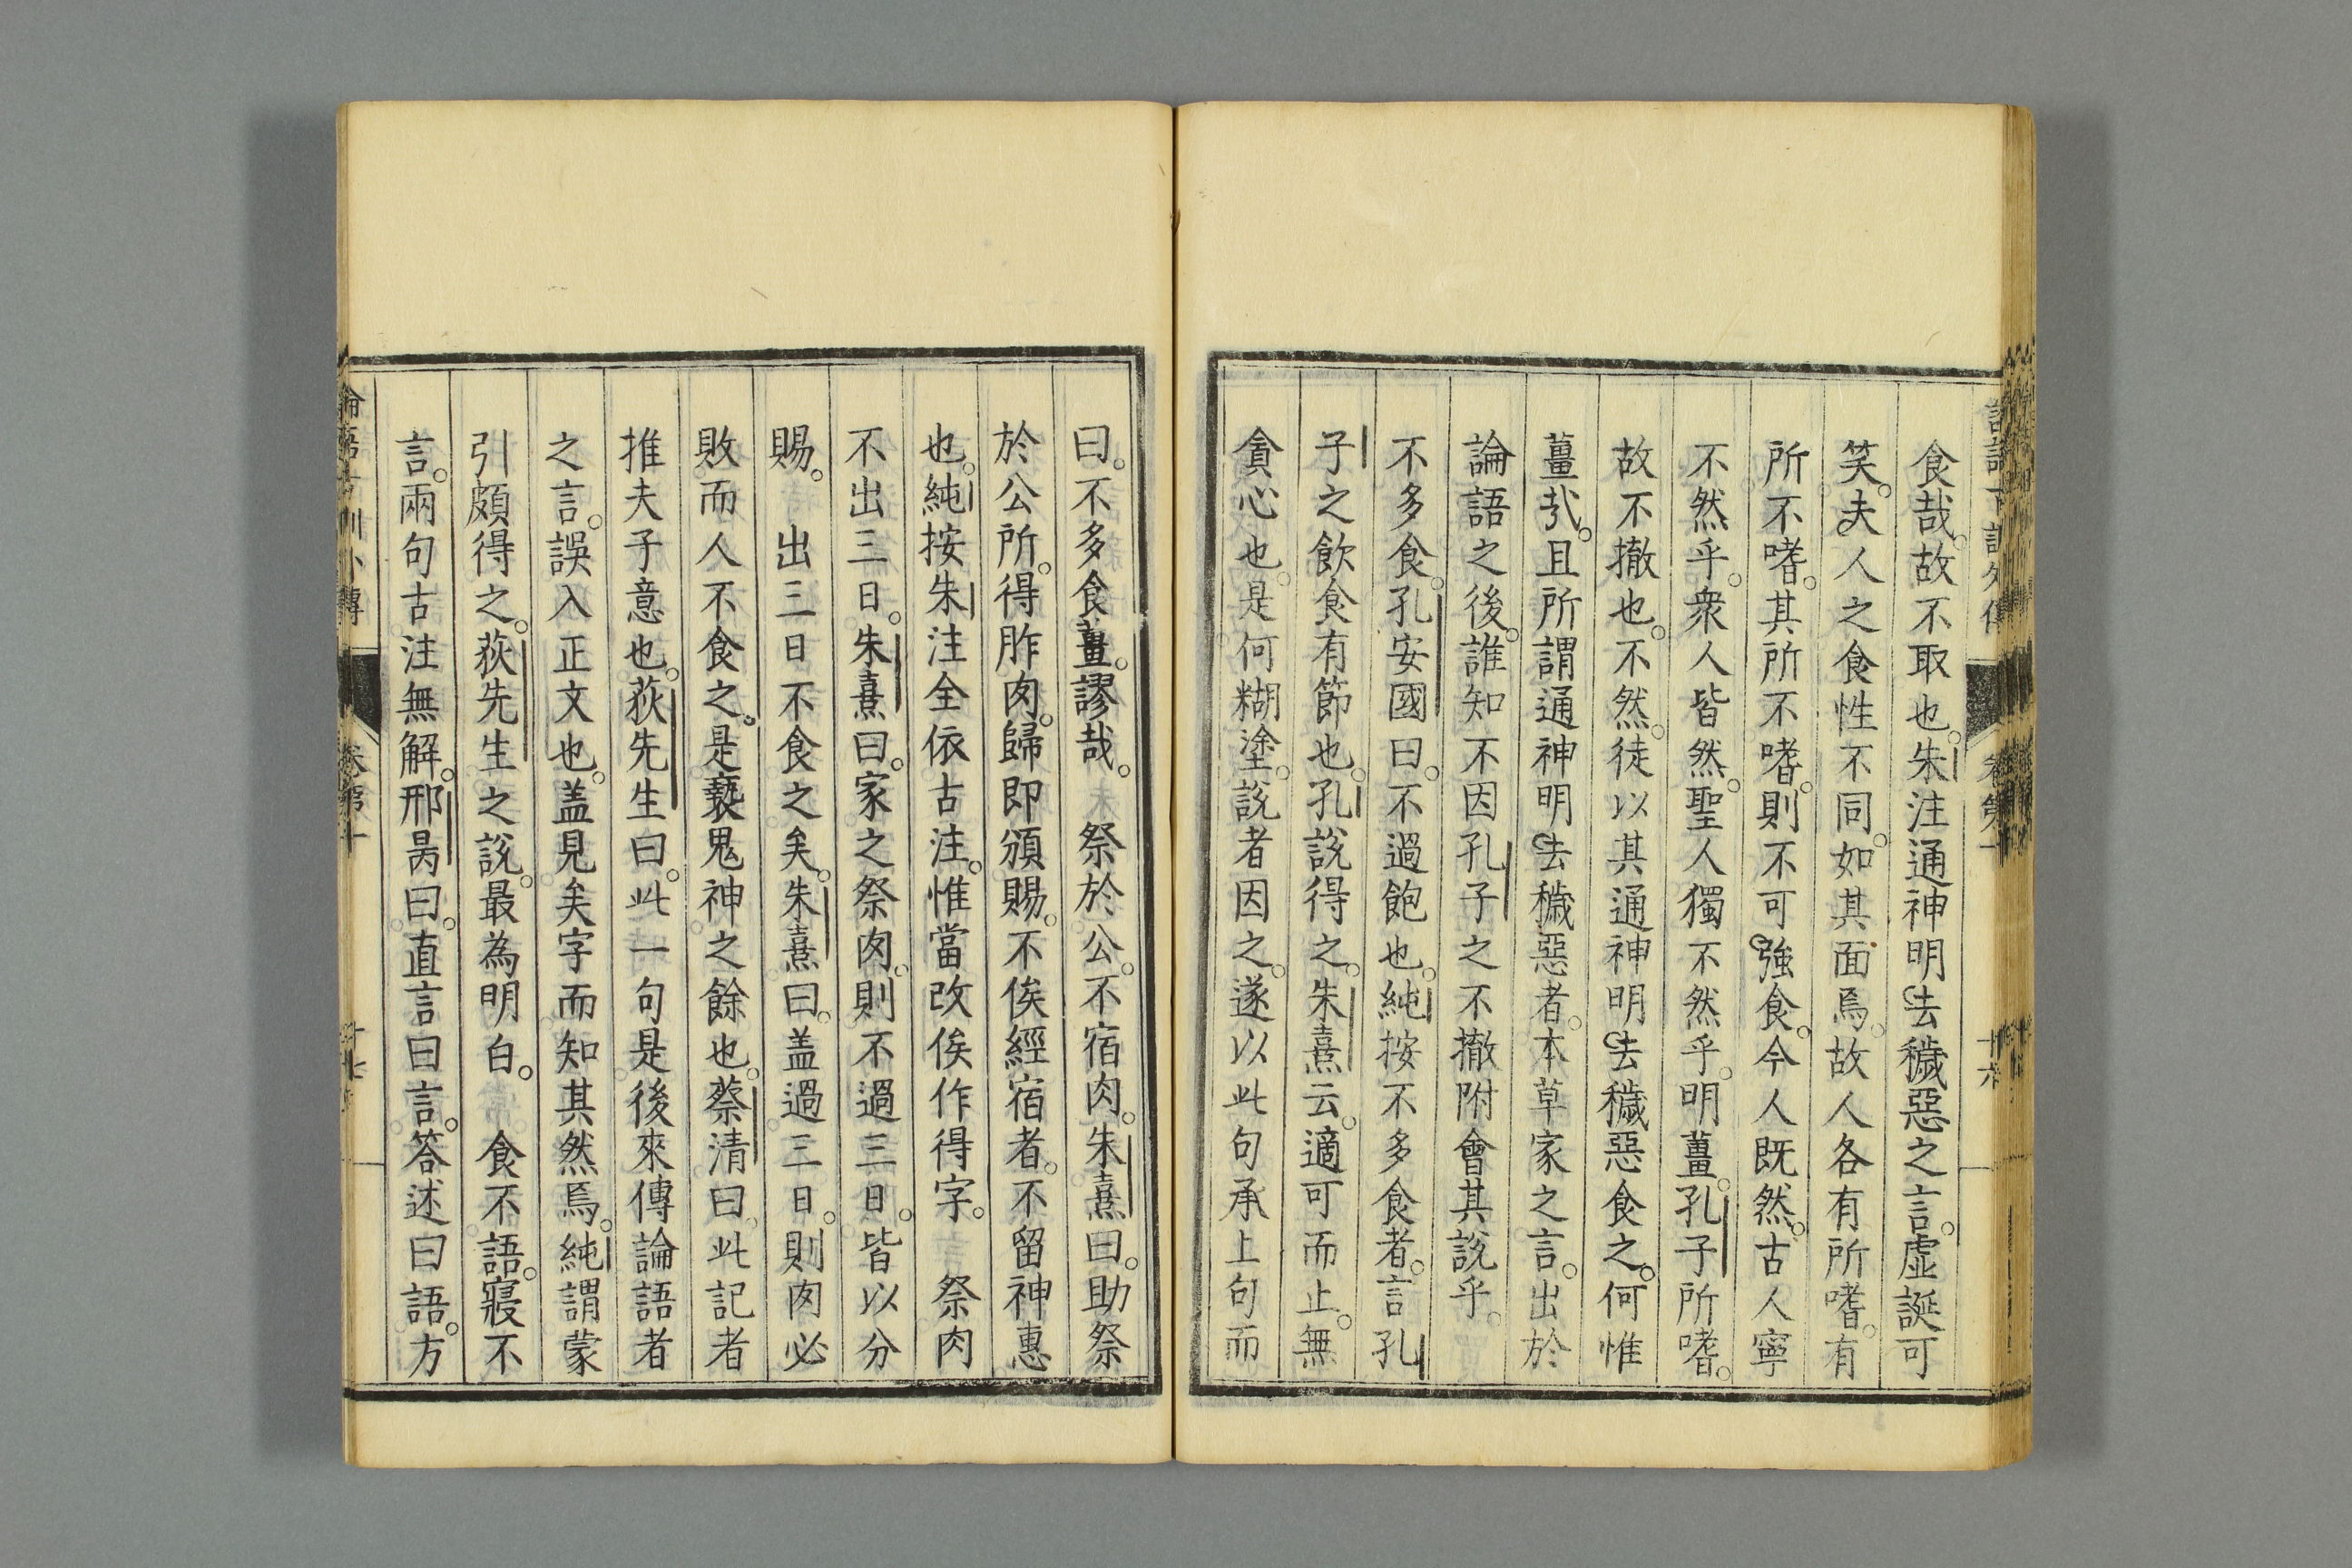 食哉。故不取也。朱注通神明去穢惡之言。虛誕可
笑。夫人之食性不同。如其面焉。故人各有所嗜。有
所不嗜。其所不嗜。則不可強食。今人既然。古人寧
不然乎。衆人皆然。聖人獨不然乎。明薑。孔子所嗜。
故不撤也。不然。徒以其通神明去穢惡食之。何惟
薑㢤。且所謂通神明去穢惡者。本草家之言。出於
論語之後。誰知不因孔子之不撤附會其說乎。
不多食。孔安國曰。不過飽也。純按不多食者。言孔
子之飲食有節也。孔說得之。朱熹云。適可而止。無
貪心也。是何糊塗。說者因之。遂以此句承上句而
曰。不多食薑。謬哉。 祭於公。不宿肉。朱熹曰。助祭
於公所。得胙肉。歸即頒賜。不俟經宿者。不留神惠
也。純按朱注全依古注。惟當改俟作得字。 祭肉
不出三日。朱熹曰。家之祭肉。則不過三日。皆以分
賜。 出三日不食之矣。朱熹曰。盖過三日。則肉必
敗而人不食之。是褻鬼神之餘也。蔡清曰。此記者
推夫子意也。荻先生曰。此一句是後來傳論語者
之言。誤入正文也。盖見矣字而知其然焉。純謂蒙
引頗得之。荻先生之說。最為明白。 食不語。寢不
言。兩句古注無解。邢昺曰。直言曰言。答述曰語。方
論語古訓外傳 卷第十 十七